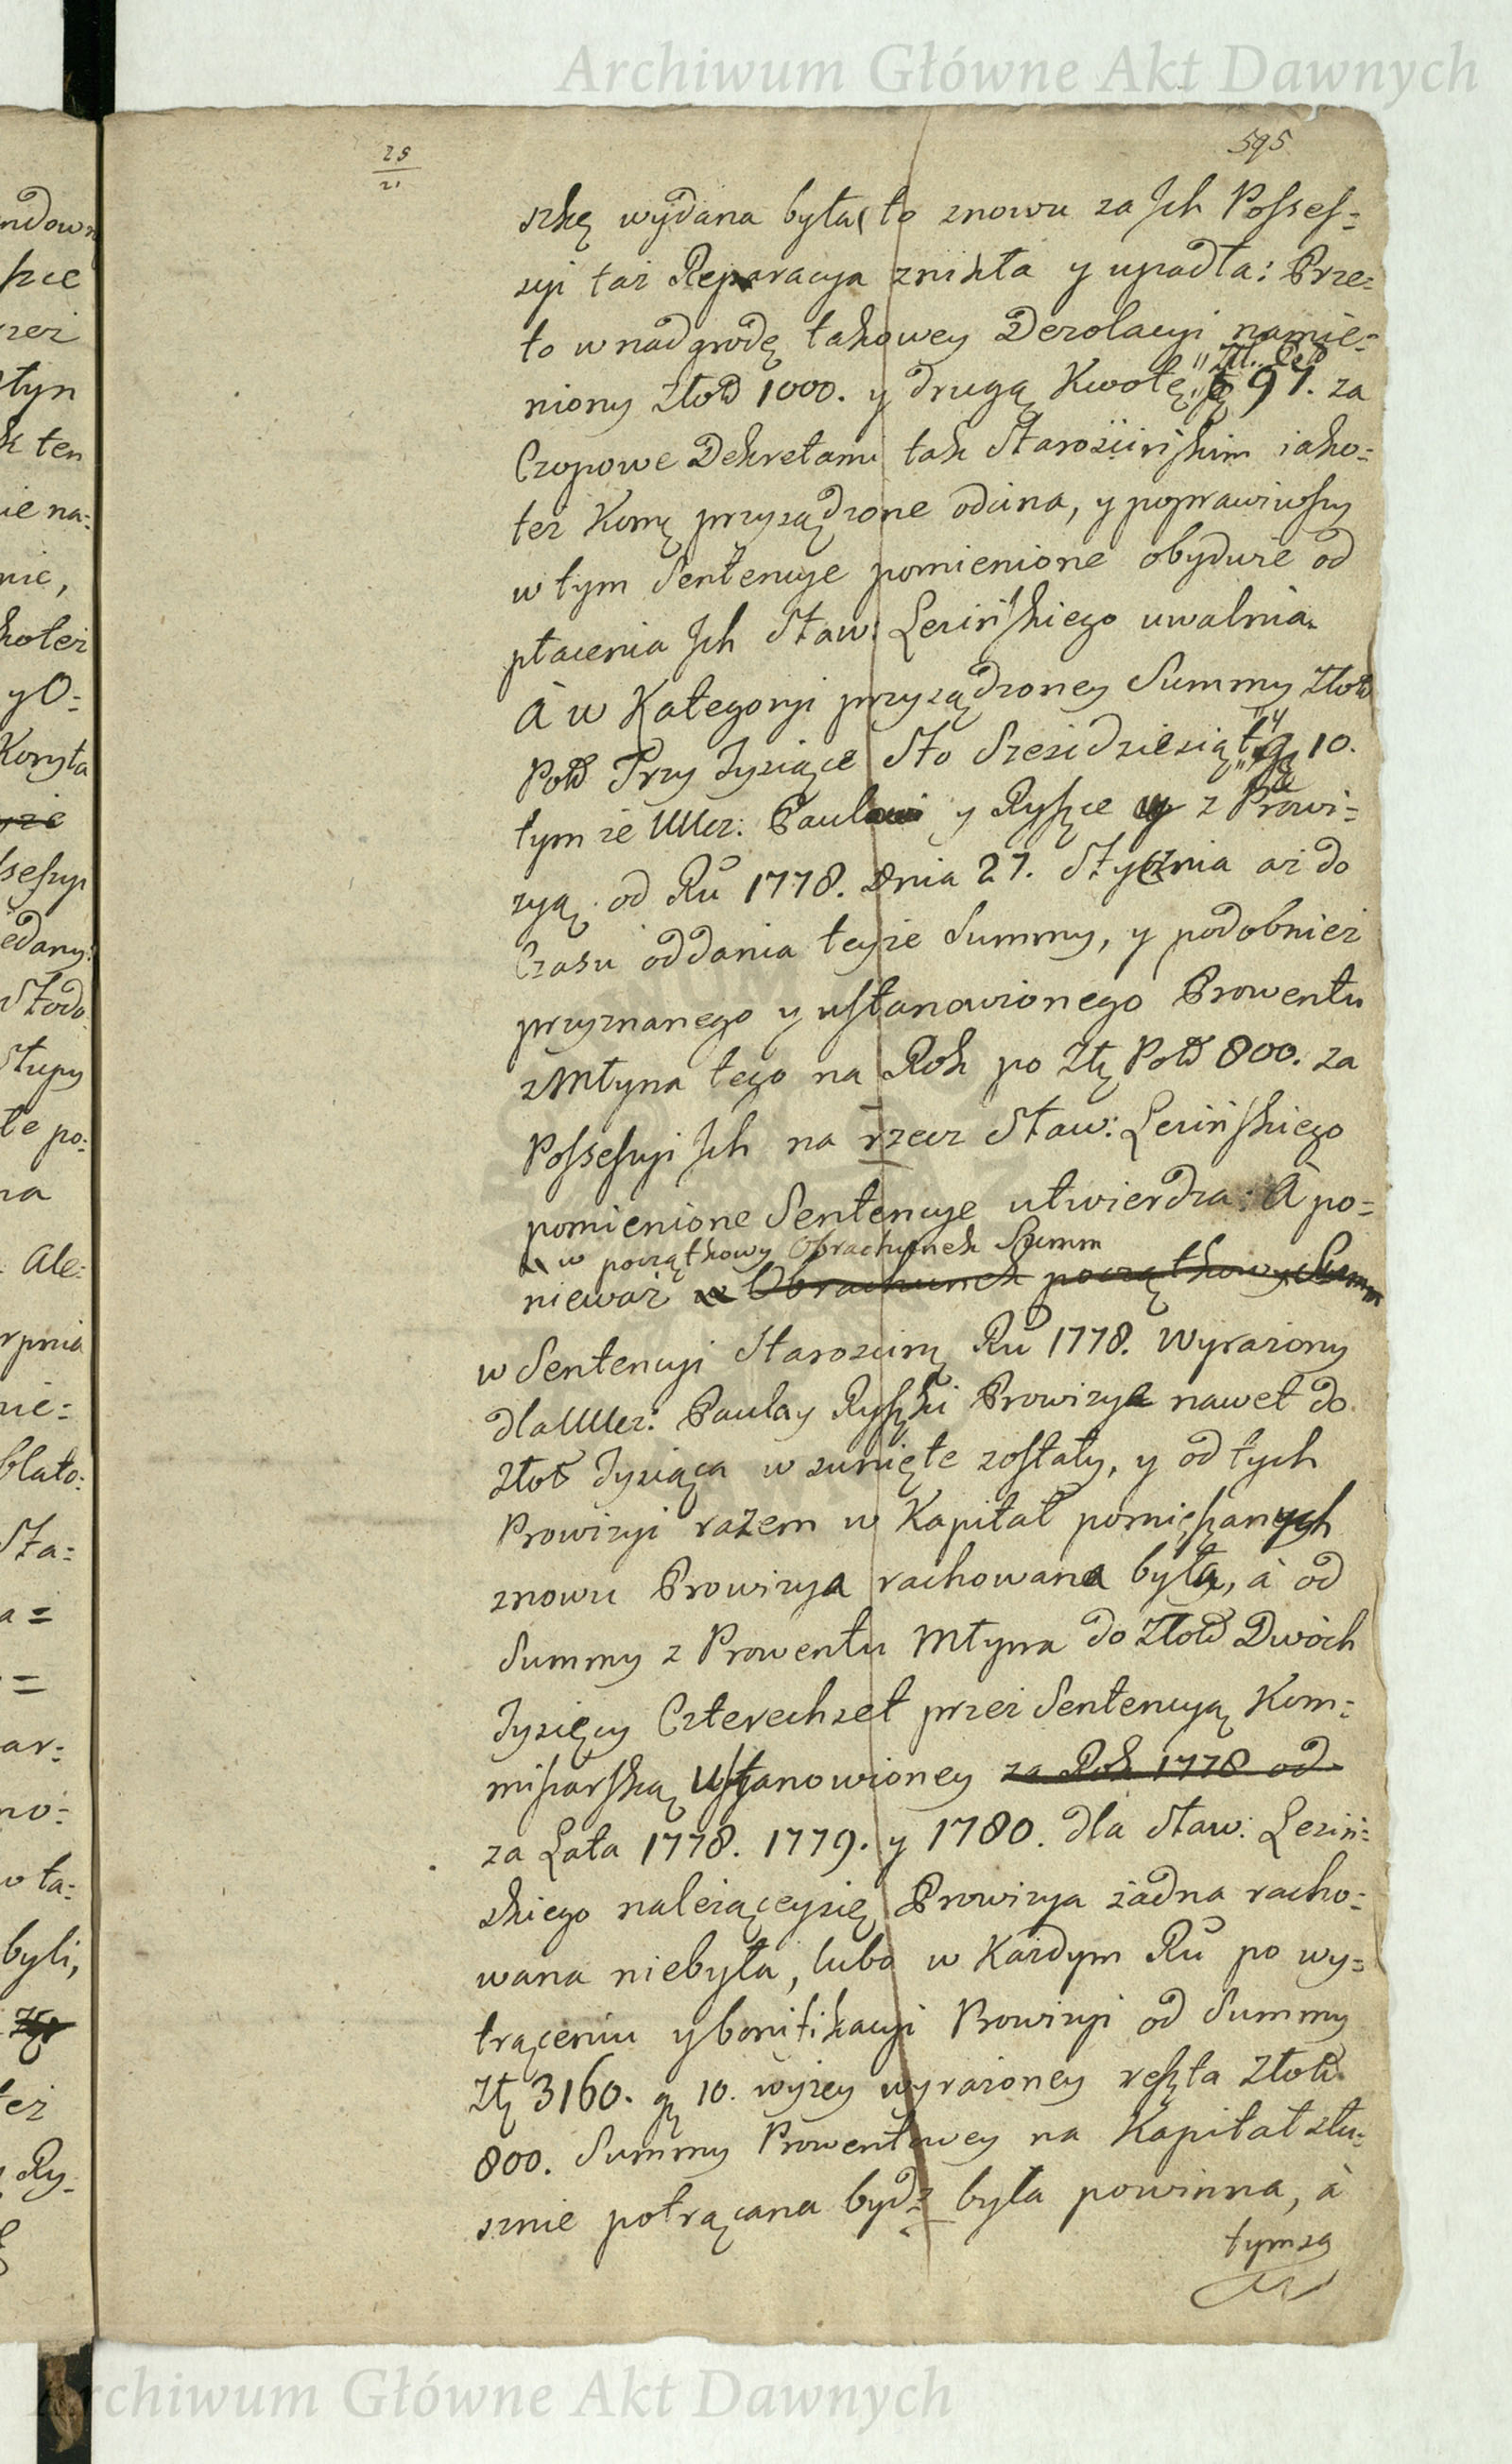 Archiwum Główne Akt Dawnych
595
szkę wydana była, to znowu za Jch Possef=
syi taż Reparacya znikła y upadła: Prze=
to w nadgrodę takowey Dezolacyi namie=
niony Złotð 1000. y drugą Kwotę 91. za
Czopowe Dekretami tak Starościńskim iako=
też Komę przysądzone odcina, y poprawiwszy
w tym Sentencye pomienione obydwie od
płacenia Jch Staw: Lezińskiego uwalnia.
À w Kategoryi przysądzoney Summy Złotð
Polð Trzy Tysiące Sto Sześćdziesiąt y gę 10.
tymże UUcz: Paul y Ryszce z Prowi=
zyą od Rú 1778. dnia 27. Stycznia aż do
Czasu oddania teyże Summy, y podobnież
przyznanego y ustanowionego Prowentu
z Młyna tego na Rok po Złę Polð 800. za
Possessyi Jch na rzecz Staw: Lezińskiego
pomienione Sentencye utwierdza: À po=
w początkowy Obrachunek Summ
nieważ w Obrachunek początkowy Summ
w Sentencyi Starościnę Rú 1778. Wyrażony
dla UUcz: Paula y Ryszki Prowizye nawet do
złotð Tysiąca wsunięte zostały, y od tych
Prowizyi razem w Kapitał pomięszanych
znowu Prowizya rachowana była, à od
Summy z Prowentu Młyna do Złotð Dwóch
Tysięcy Czterechset przez Sentencyą Kom=
misarską Ustanowioney za Rok 1778 od
za Lata 1778. 1779. y 1780. dla Staw: Leziń=
skiego należąceysię Prowizya żadna racho=
wana niebyła, lubo w Każdym Rú po wy=
trąceniu y bonifikacyi Prowizyi od Summy
Złę 3160. gę 10. wyżey wyrażoney reszta Złotð
800. Summy Prowentowey na Kapitał słu=
sznie potrącana bydź była powinna, à
tymsą
Archiwum Główne Akt Dawnych